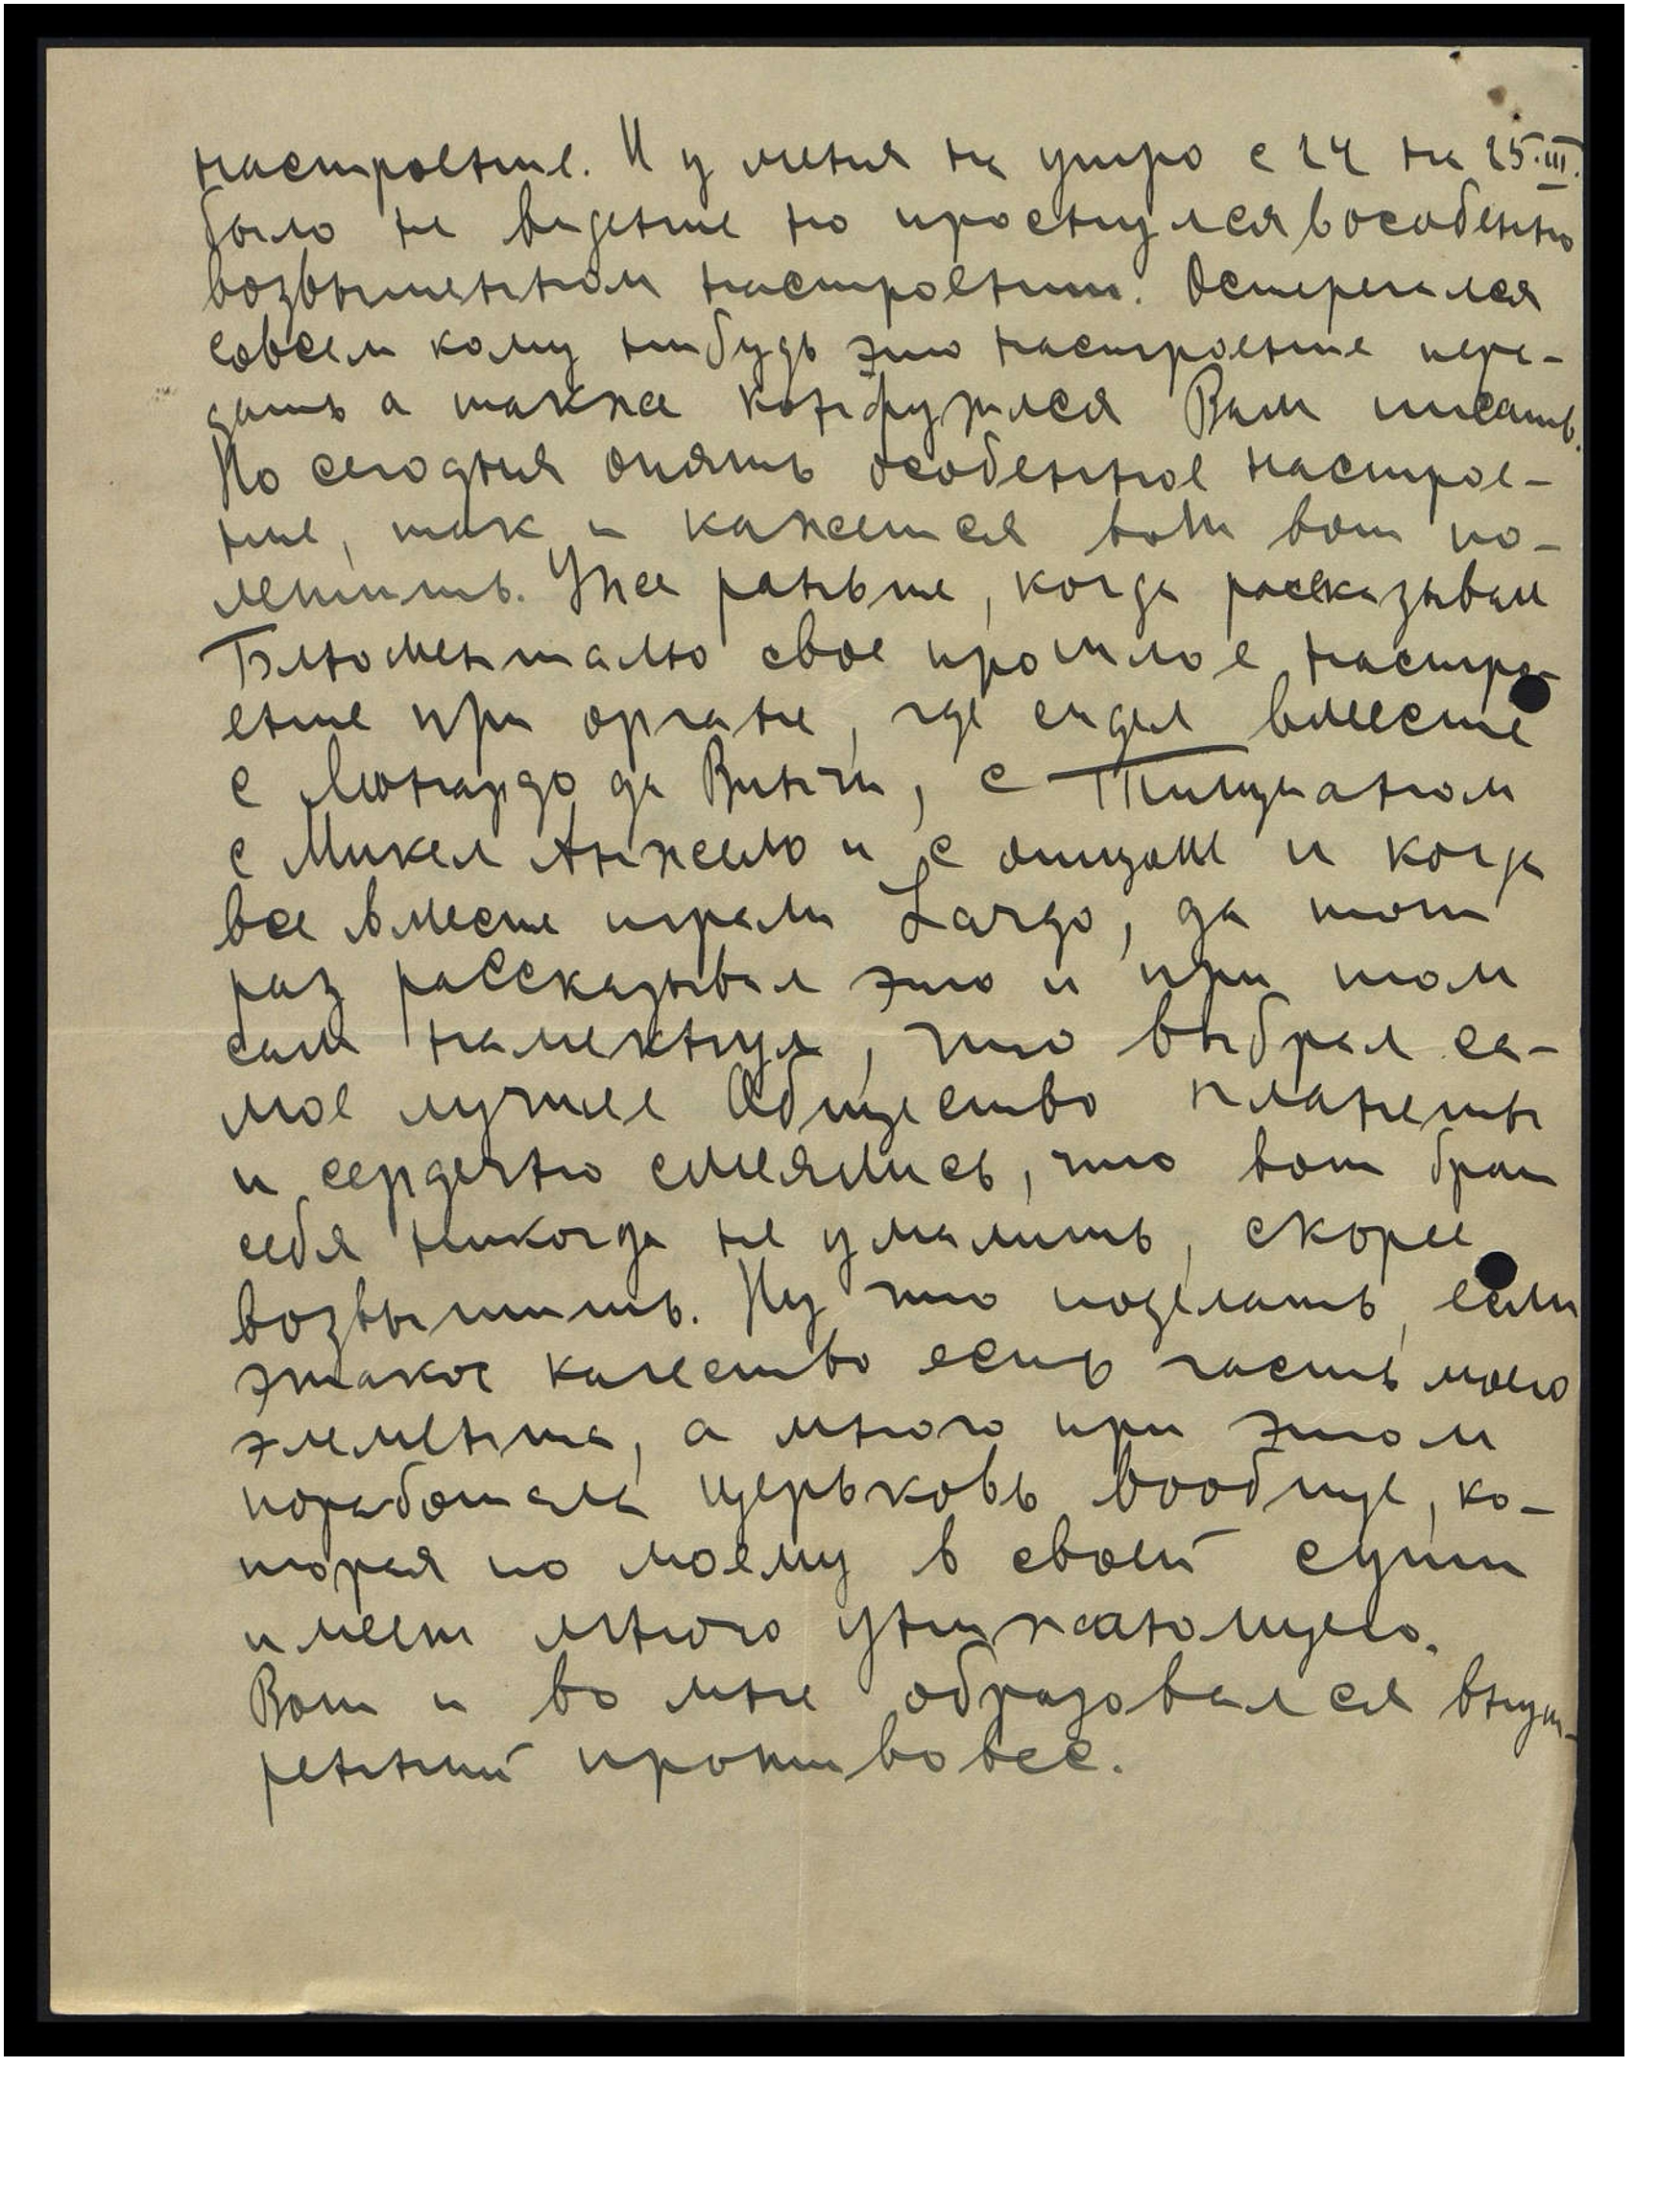 настроение. И у меня на утро с 24 на 25.III.
было не видение но проснулся в особенно
возвышенном настроении. Остерегался
совсем кому нибудь это настроение пере-
дать а также конфузился Вам писать.
Но сегодня опять особенное настрое-
ние, так и кажется вот вот по-
летишь. Уже раньше, когда рассказывал
Блюменталю свое прошлое настро-
ение при органе, где сидел вместе
с Леонардо да Винчи, с Тицианом
с Микел Анжело и с отцом и когда
все вместе играли Largo, да тот
раз рассказывал это и при том
сам намекнул, что выбрал са-
мое лучшее Общество планеты
и сердечно смеялись, что вот брат
себя никогда не умалит, скорее
возвысит. Ну что поделать, если
этакое качество есть часть моего
элемента, а много при этом
поработала церьковь вообще, ко-
торая по моему в своей сути
имеет много унижающего.
Вот и во мне образовался внут-
ренний противовес.